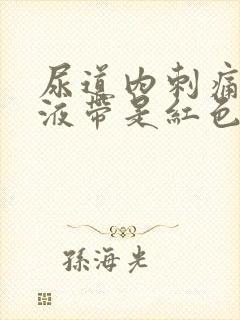 尿道内刺痛
液带是红色
孫海光